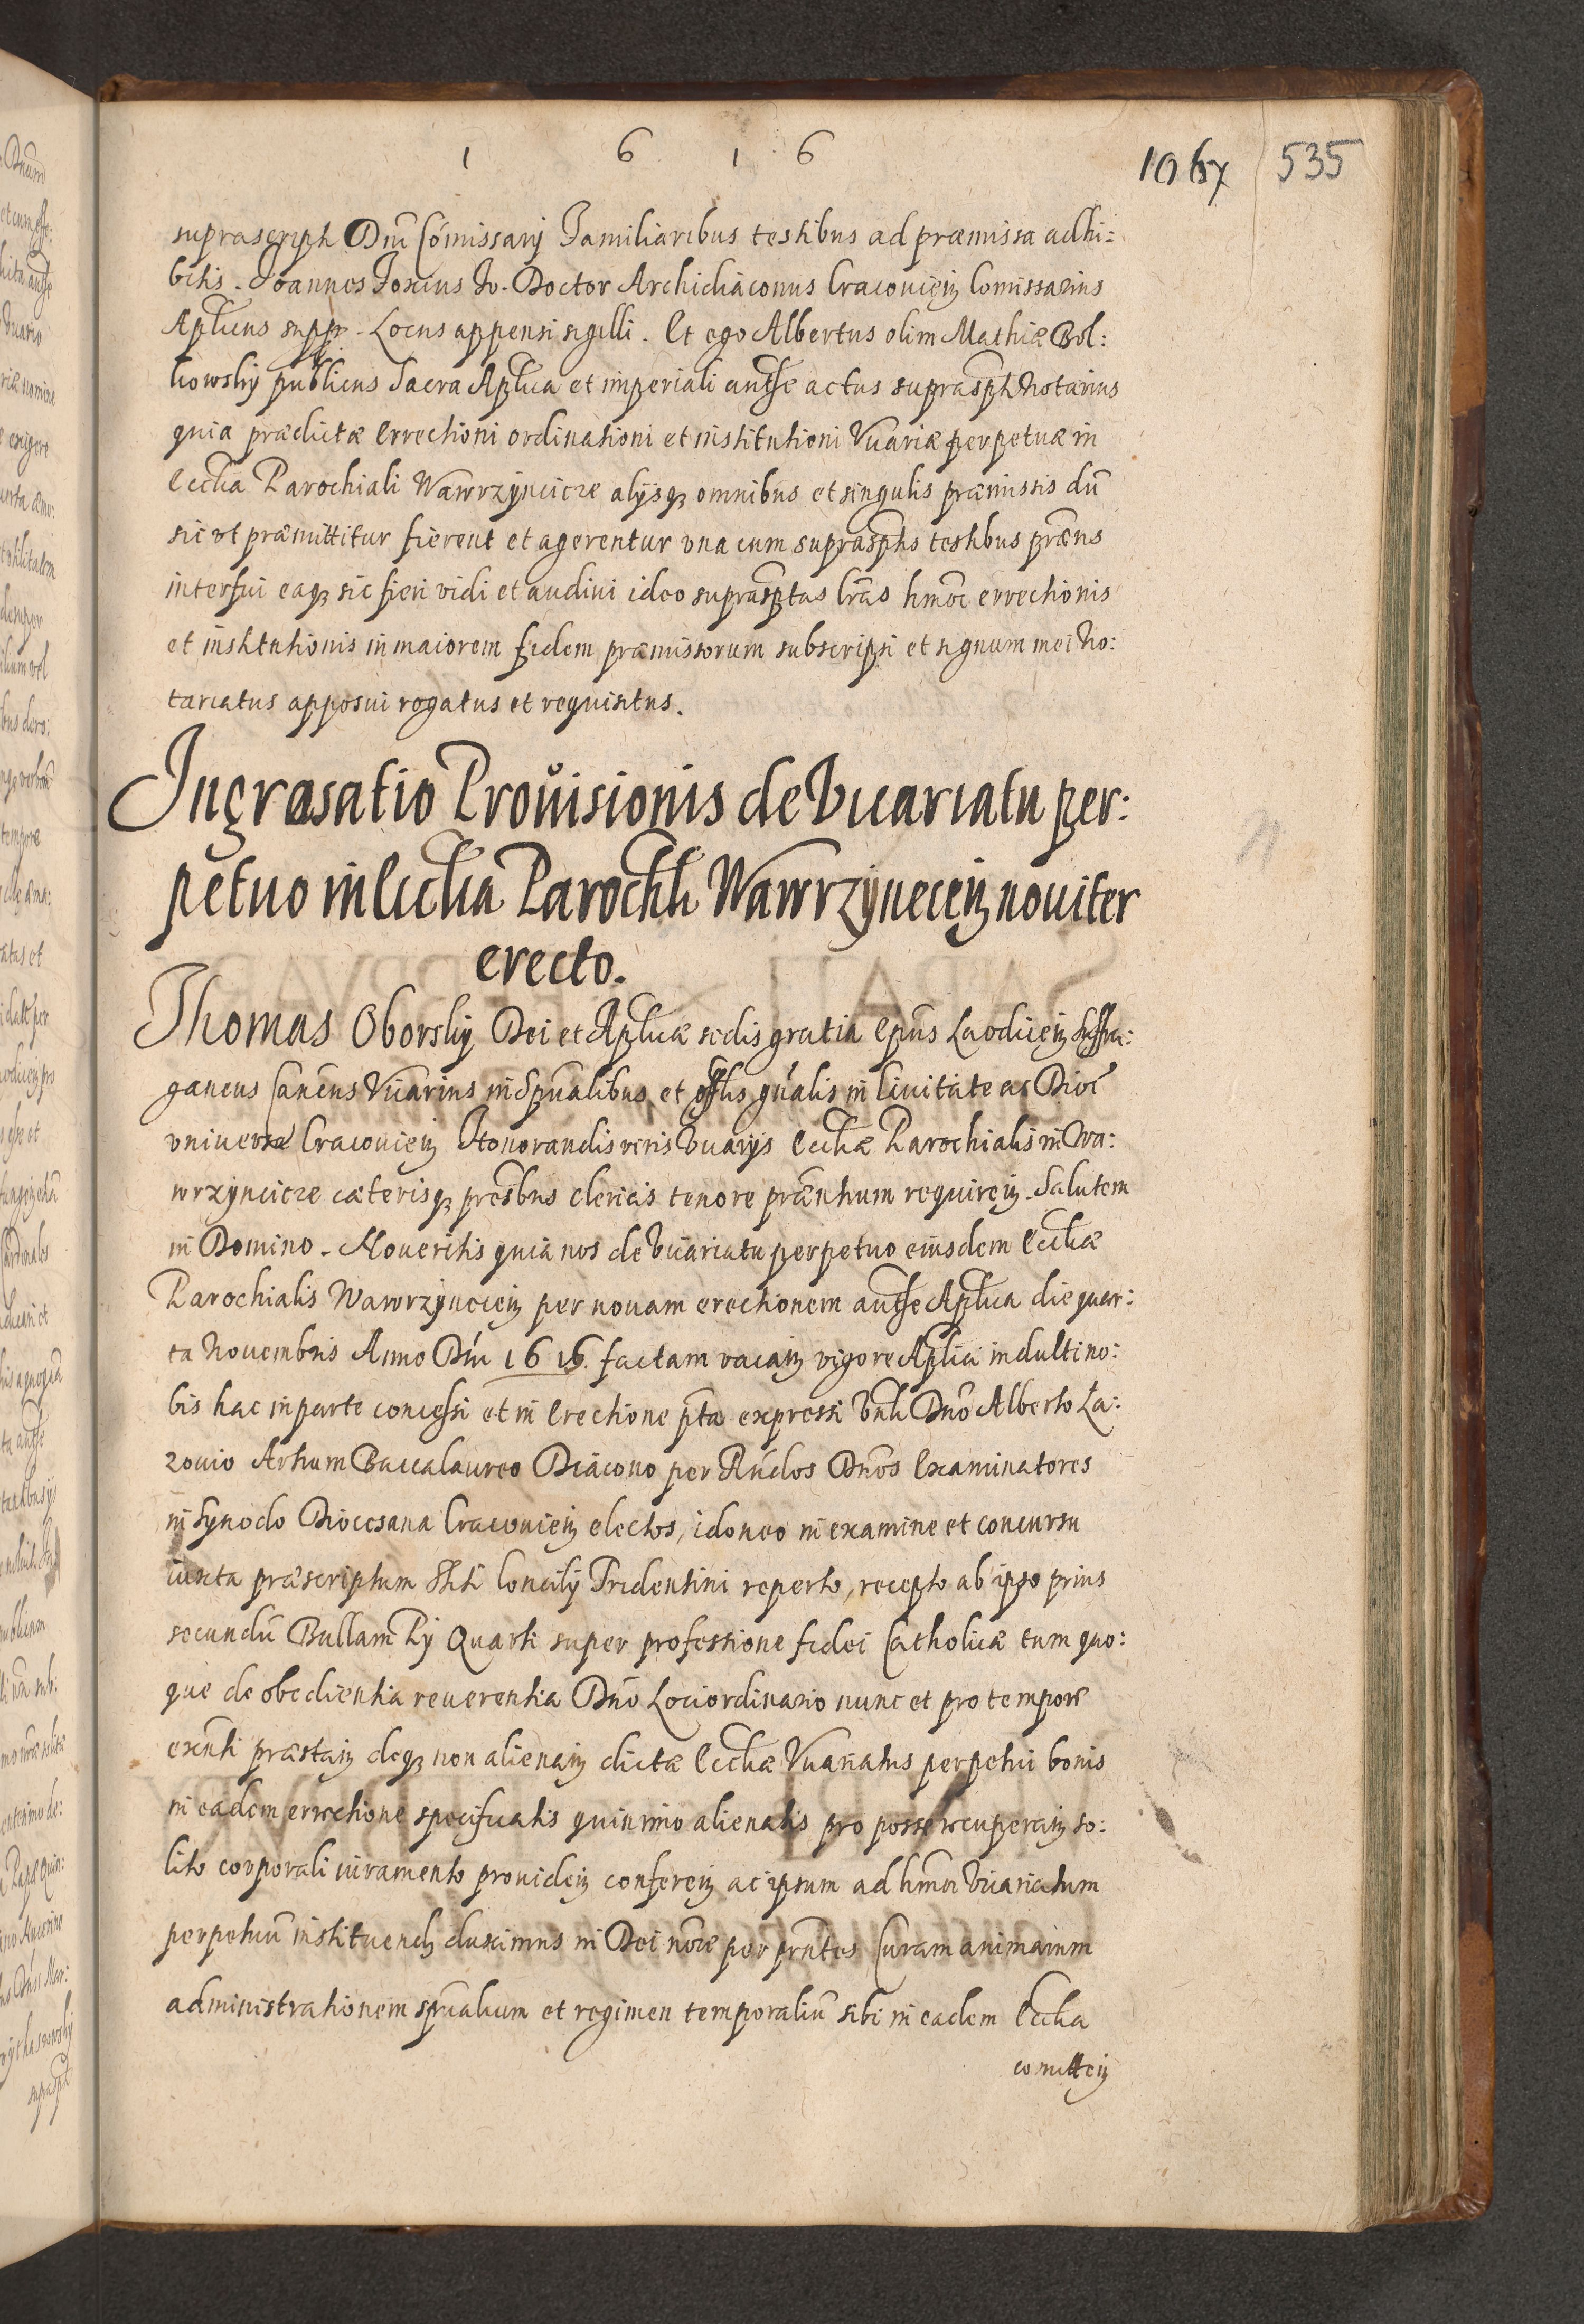 1 6 1 6
1067 535
suprascript Dni Comissarij Familiaribus testibus ad præmissa adhi:
bitis. Joannes Foxius Iv. Doctor Archidiaconus Cracovien Comissarius
Aplicus supp. Locus appensi sigilli. Et ego Albertus olim Mathiæ Bol:
kowsky publicus Sacra Aplica et imperiali authte actus supraspti Notarius
quia prædictæ Errectioni ordinationi et institutioni Vicariæ perpetuæ in
Ecclia Parochiali Wawrzyncicze alijsq omnibus et singulis præmissis dū
sic vt præmittitur fierent et agerentur vna cum suprasptis testibus præns
interfui eaq sic fieri vidi et audivi ideo suprasptas lras hmoi errectionis
et institutionis in maiorem fidem præmissorum subscripsi et signum mei No:
tariatus apposui rogatus et requisitus.
Ingrosatio Provisionis de Vicariatu per:
petuo in Ecclia Parochli Wawrzynecen noviter
erecto.
Thomas Oborsky Dei et Aplicæ sedis gratia Epus Laodicen Suffra:
ganeus Cancus Vicarius in Spualibus et Offlis gnalis in Civitate ac Dioc
vniversa Cracovien Honorandis viris Vicarijs Eccliæ Parochialis in Wa:
wrzyncicze cæterisq presbris clericis tenore præntium requiren. Salutem
in Domino. Noveritis quia nos de Vicariatu perpetuo eiusdem Eccliæ
Parochialis Wawrzyncien per novam erectionem authte Aplica die quar:
ta Novembris Anno Dni 1616. factam vacan vigore Aplici indulti no:
bis hac in parte concessi et in Erectione pta expressi Vnli Dno Alberto La:
zovio Artium Baccalaureo Diacono per Rndos Dnos Examinatores
in Synodo Dioecesana Cracovien electos, idoneo in examine et concursu
iuxta præscriptum Stti Concilij Tridentini reperto, recepto ab ipso prius
secundū Bullam Pij Quarti super professione fidei Catholicæ tum quo:
que de obedientia reverentia Dno Loci ordinario nunc et pro tempore
exnti præstan deq non alienan dictæ Eccliæ Vicariatus perpetui bonis
in eadem errectione specificatis quinimo alienatis pro posse recuperan so:
lito corporali iuramento providen conferen ac ipsum ad hmoi Vicariatum
perpetuū instituend duximus in Dei noīe per prntes Curam animarum
administrationem spualium et regimen temporaliū sibi in eadem Ecclia
comitten